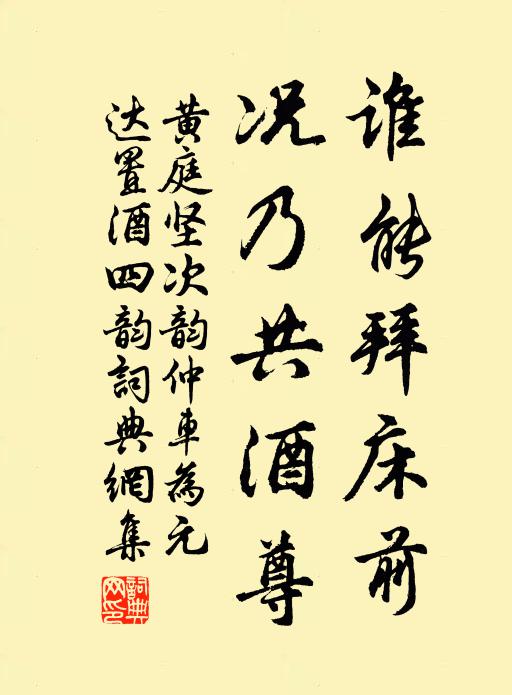 谁能拜床前
况乃共酒尊
黄庭坚次韵仲车为元
达置酒四韵词典網集
詞典網印